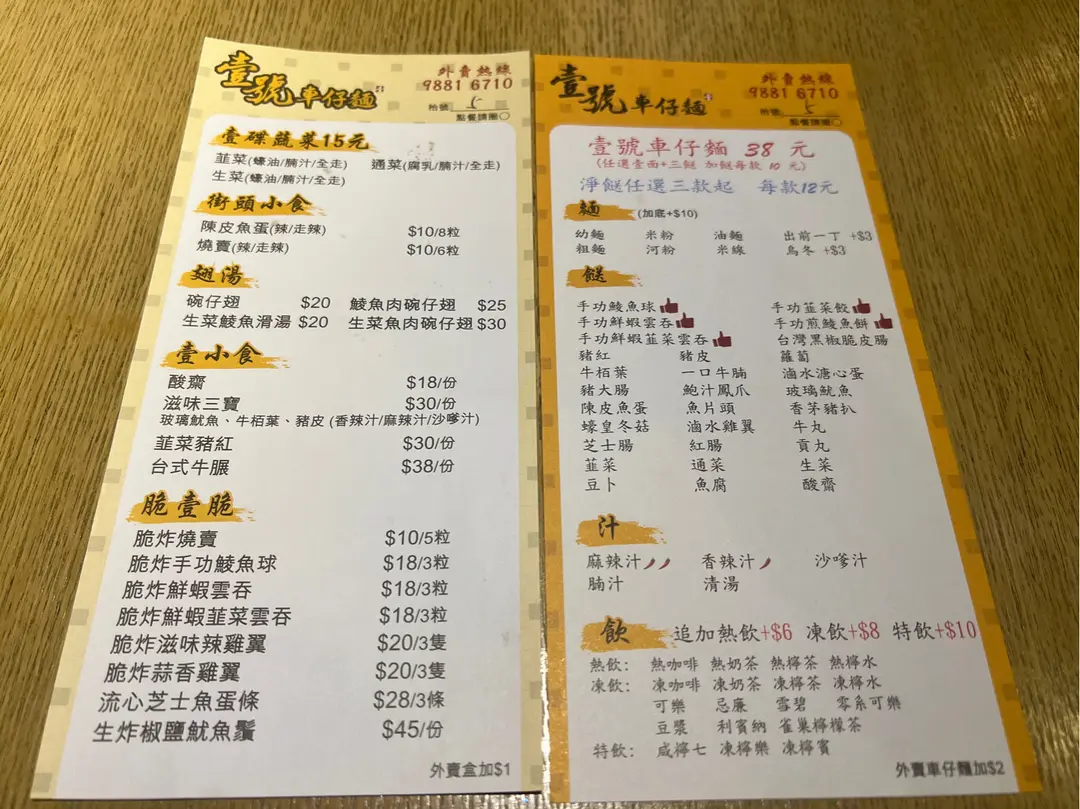 壹號車仔麵
外賣熱線
9881 6710
枱號 5
點餐請圈○
壹碟蔬菜15元
韮菜(蠔油/腩汁/全走) 通菜(腐乳/腩汁/全走)
生菜(蠔油/腩汁/全走)
街頭小食
陳皮魚蛋(辣/走辣) $10/8粒
燒賣(辣/走辣) $10/6粒
翅湯
碗仔翅 $20 鯪魚肉碗仔翅 $25
生菜鯪魚滑湯 $20 生菜魚肉碗仔翅 $30
壹小食
酸齋 $18/份
滋味三寶 $30/份
玻璃魷魚、牛栢葉、豬皮 (香辣汁/麻辣汁/沙嗲汁)
韮菜豬紅 $30/份
台式牛𦟌 $38/份
脆壹脆
脆炸燒賣 $10/5粒
脆炸手功鯪魚球 $18/3粒
脆炸鮮蝦雲吞 $18/3粒
脆炸鮮蝦韮菜雲吞 $18/3粒
脆炸滋味辣雞翼 $20/3隻
脆炸蒜香雞翼 $20/3隻
流心芝士魚蛋條 $28/3條
生炸椒鹽魷魚鬚 $45/份
外賣盒加$1
壹號車仔麵
外賣熱線
9881 6710
枱號 5
點餐請圈○
壹號車仔麵 38 元
(任選壹面+三餸 加餸每款 10 元)
淨餸任選三款起 每款12元
麵 (加底+$10)
幼麵 米粉 油麵 出前一丁 +$3
粗麵 河粉 米線 烏冬 +$3
餸
手功鯪魚球 手功韮菜餃
手功鮮蝦雲吞 手功煎鯪魚餅
手功鮮蝦韮菜雲吞 台灣黑椒脆皮腸
豬紅 豬皮 蘿蔔
牛栢葉 一口牛腩 滷水溏心蛋
豬大腸 鮑汁鳳爪 玻璃魷魚
陳皮魚蛋 魚片頭 香茅豬扒
蠔皇冬菇 滷水雞翼 牛丸
芝士腸 紅腸 貢丸
韮菜 通菜 生菜
豆卜 魚腐 酸齋
汁
麻辣汁 香辣汁 沙嗲汁
腩汁 清湯
飲 追加熱飲+$6 凍飲+$8 特飲+$10
熱飲: 熱咖啡 熱奶茶 熱檸茶 熱檸水
凍飲: 凍咖啡 凍奶茶 凍檸茶 凍檸水
可樂 忌廉 雪碧 零系可樂
豆漿 利賓納 雀巢檸檬茶
特飲: 咸檸七 凍檸樂 凍檸賓
外賣車仔麵加$2